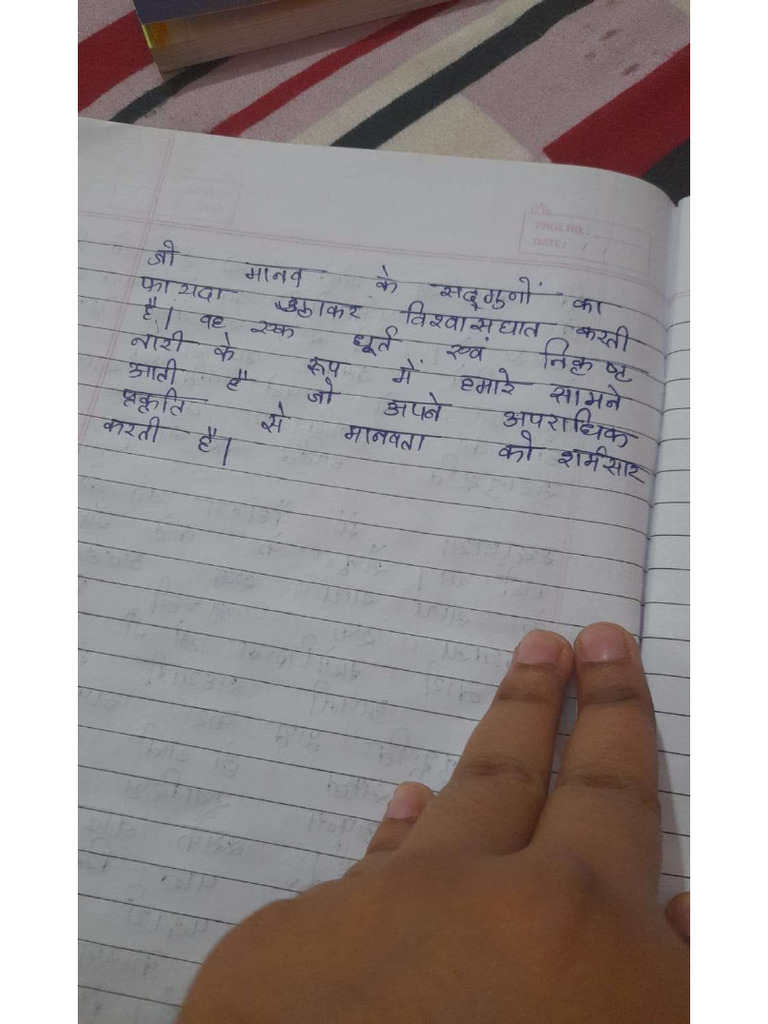 PAGE NO.:
DATE: / /
जो मानव के सद्गुनों का
फायदा उठाकर विश्वासघात करती
है। वह एक धूर्त एवं निकृष्ट
नारी के रूप में हमारे सामने
आती है जो अपने अपराधिक
प्रकृति से मानवता को शर्मसार
करती है।